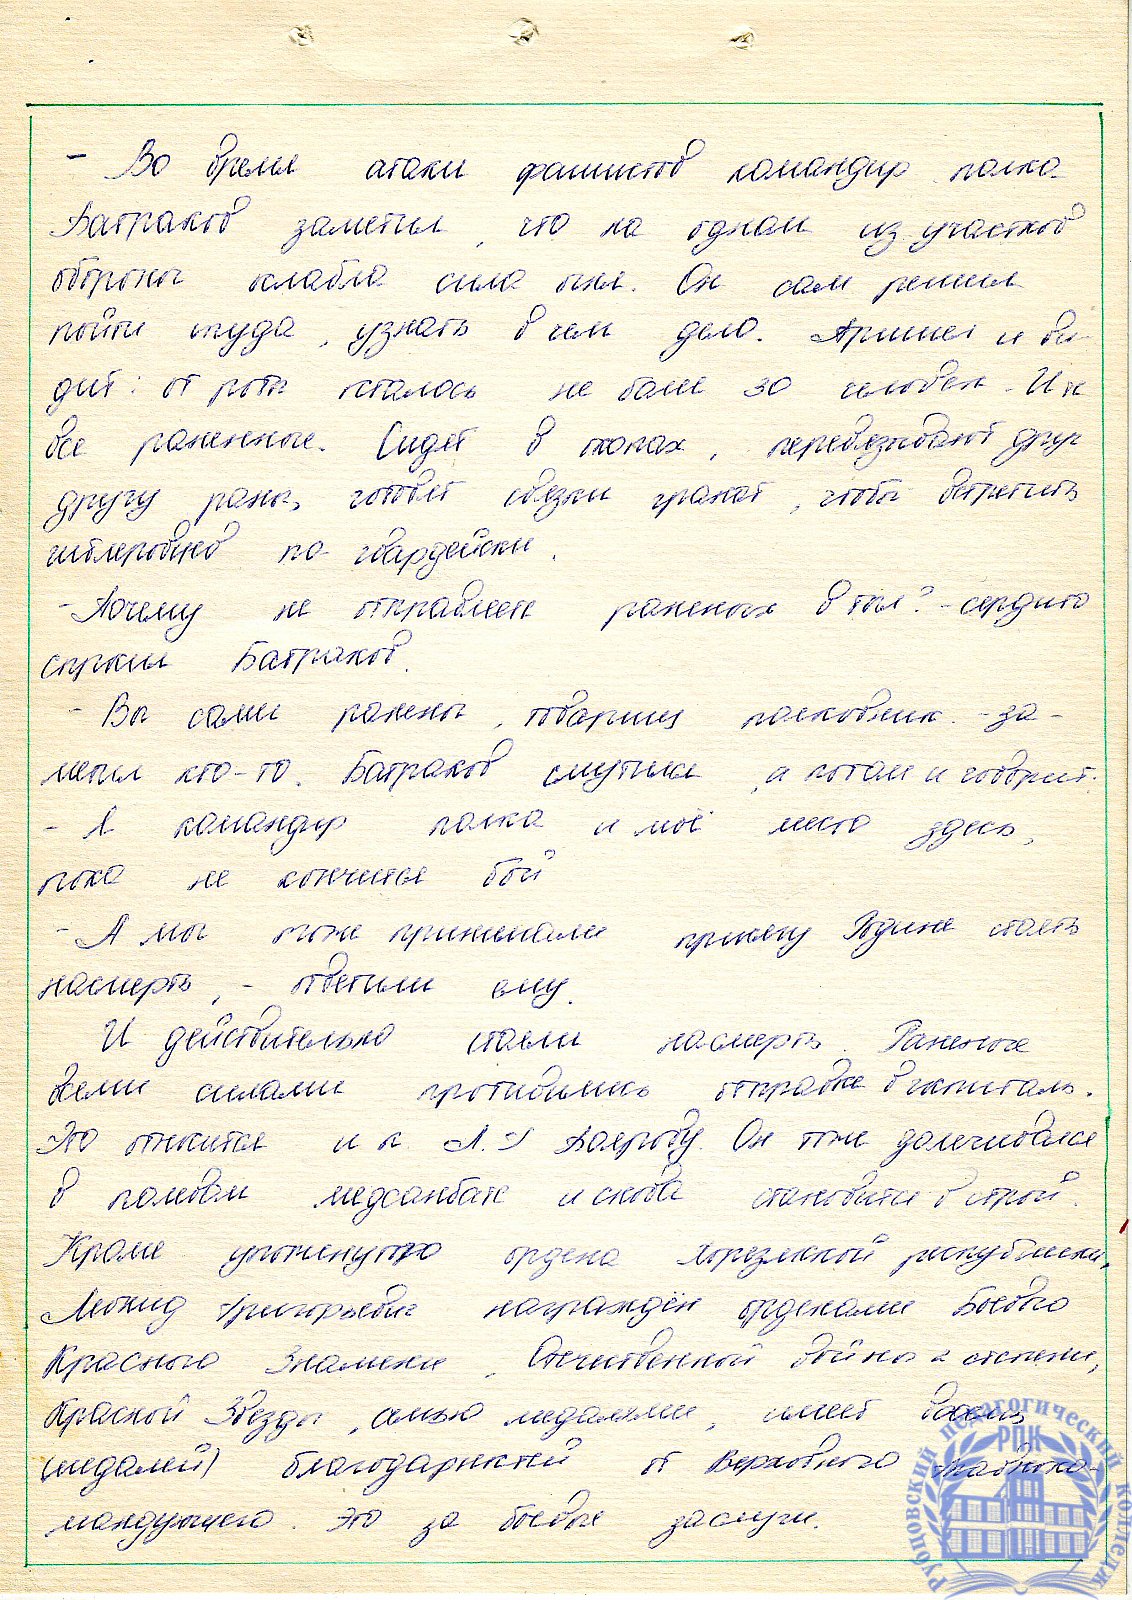 - Во время атаки фашистов командир полка
Батраков заметил, что на одном из участков
обороны ослабла сила огня. Он сам решил
пойти туда, узнать в чем дело. Пришел и ви-
дит: от роты осталось не более 30 человек. И те
все раненные. Сидят в окопах, перевязывают друг
другу раны, готовят связки гранат, чтобы встретить
гитлеровцев по-гвардейски.
- Почему не отправляете раненых в тыл? - сердито
спросил Батраков.
- Вы сами ранены, товарищ полковник. - за-
метил кто-то. Батраков смутился, а потом и говорит:
- Я командир полка и моё место здесь,
пока не кончится бой
- А мы тоже принимали присягу Родине стоять
насмерть, - ответили ему.
И действительно стояли насмерть. Раненые
всеми силами противились отправке в госпиталь.
Это относится и к Л.Г Боярову. Он тоже долечивался
в полевом медсанбате и снова становится в строй.
Кроме упомянутого ордена Хорезмской республики,
Леонид Григорьевич награждён орденами Боевого
Красного Знамени, Отечественной войны 2 степени,
Красной Звезды, семью медалями, имеет восемь
(медалей) благодарностей от Верховного Главноко-
мандующего. Это за боевые заслуги.
Рубцовский педагогический колледж
РПК